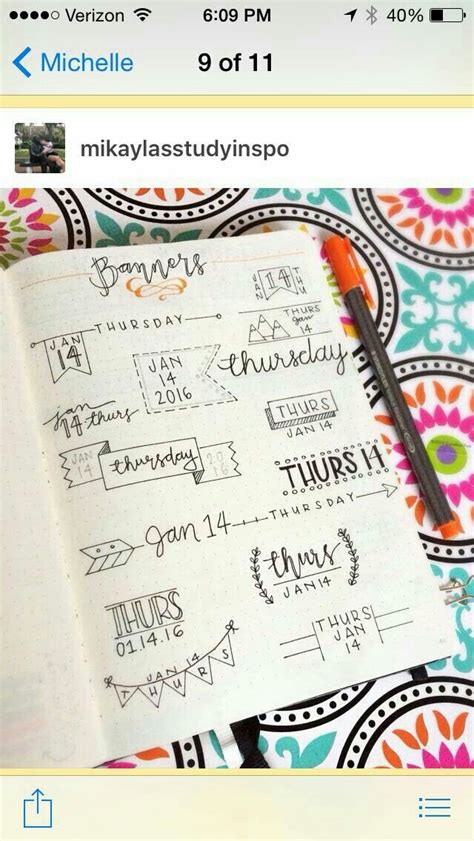 Verizon 6:09 PM 40%
Michelle 9 of 11
mikaylasstudyinspo
Banners
JAN 14 THU
THURSDAY
JAN
14
THURS
jan
14
JAN
14
2016
thursday
jan
14 thurs
THURS
JAN 14
JAN
14
thursday
20
16
THURS 14
Jan 14
THURSDAY
thurs
JAN 14
THURS
01.14.16
THURS
JAN
14
JAN 14
THURS